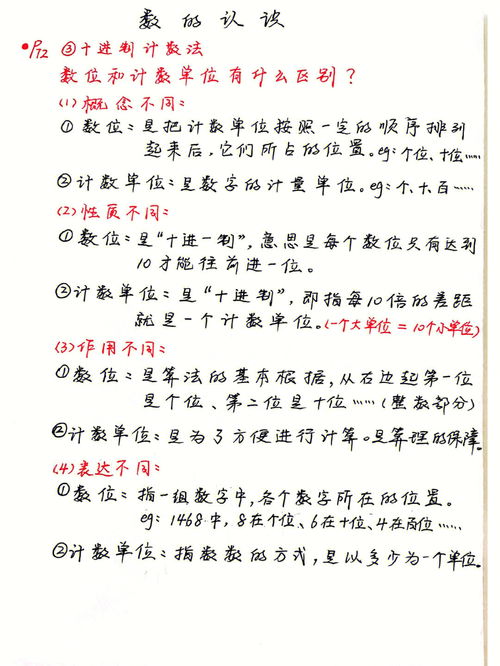 数的认识
P72 ③十进制计数法
数位和计数单位有什么区别？
(1)概念不同：
①数位：是把计数单位按照一定的顺序排列
起来后，它们所占的位置。eg：个位、十位……
②计数单位：是数字的计量单位。eg：个、十、百……
(2)性质不同：
①数位：是“十进一制”，意思是每个数位只有达到
10才能往前进一位。
②计数单位：是“十进制”，即指每10倍的差距
就是一个计数单位。(一个大单位＝10个小单位)
(3)作用不同：
①数位：是算法的基本根据，从右边起第一位
是个位、第二位是十位……(整数部分)
②计数单位：是为了方便进行计算。是算理的保障。
(4)表达不同：
①数位：指一组数字中，各个数字所在的位置。
eg：1468中，8在个位、6在十位、4在百位……
②计数单位：指数数的方式，是以多少为一个单位。